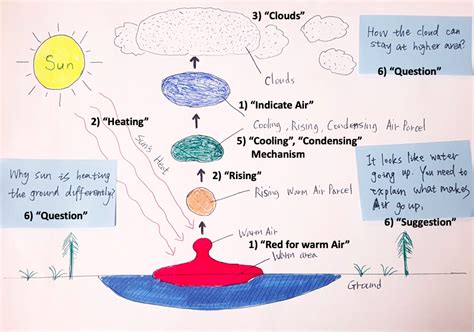 3) “Clouds”
How the cloud can
stay at higher area?
6) “Question”
Sun
Clouds
1) “Indicate Air”
2) “Heating”
Cooling, Rising, Condensing Air Parcel
5) “Cooling”, “Condensing”
Mechanism
Sun's
Heat
Why sun is heating
the ground differently?
6) “Question”
2) “Rising”
Rising Warm Air Parcel
It looks like water
going up. You need to
explain what makes
Air go up.
6) “Suggestion”
Warm Air
1) “Red for warm Air”
Warm area
Ground